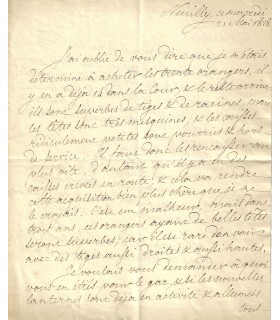 Neuilly, ce mercredi
21 Mai 1828
J'ai oublié de vous dire que je m'étois
déterminé à acheter les trente orangers, il
y en a déjà 14 dans la Cour, & le reste arrive
ils sont superbes de tiges & de racines, mais
les têtes sont très mesquines, & les caisses
ridiculement petites sont pourries & hors
de service. Il faut donc les rencaisser au
plus vite, d'autant qu'il y a eu des
caisses crevées en route, & cela va rendre
cette acquisition bien plus chère que je ne
le croyois. C'est un malheur, mais dans
trois ans, ces orangers ayant de belles têtes
seront superbes, car il est rare d'en voir
avec des tiges aussi droites & aussi hautes.
Je voulois vous demander à quoi
vous en étiez pour le gaz, & si les nouvelles
lanternes sont déjà en activité & allumées